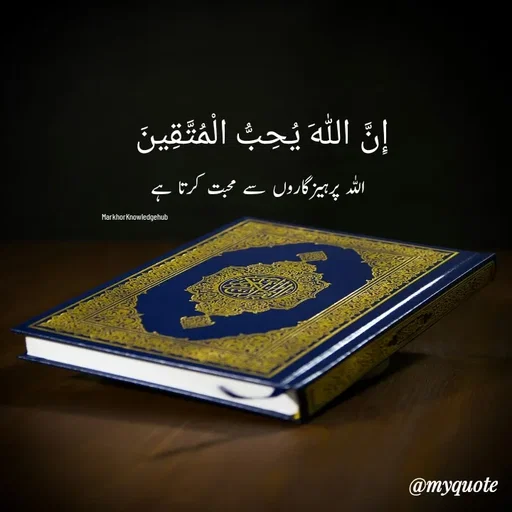 إِنَّ اللَّهَ يُحِبُّ الْمُتَّقِينَ
اللہ پرہیزگاروں سے محبت کرتا ہے
MarkhorKnowledgehub
@myquote